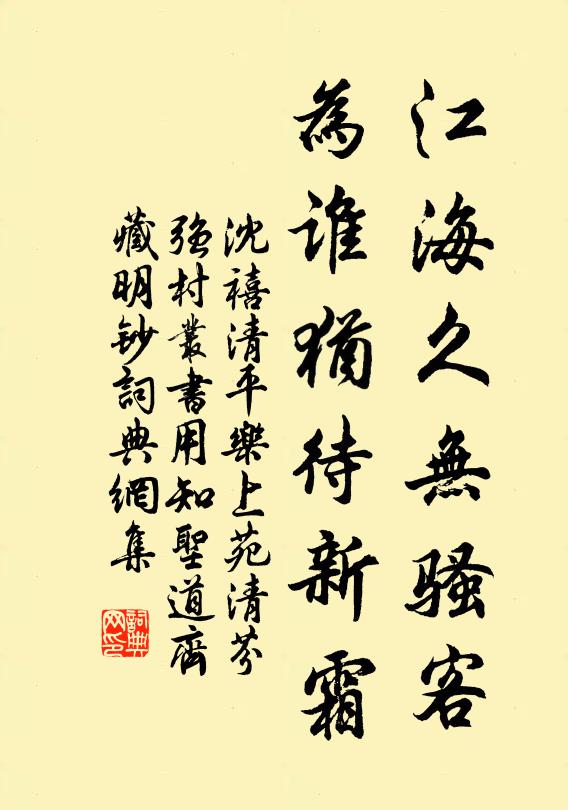 江海久無騷客
為誰猶待新霜
沈禧清平樂上苑清芬
強村叢書用知聖道齊
藏明鈔詞典網集
詞典
网印